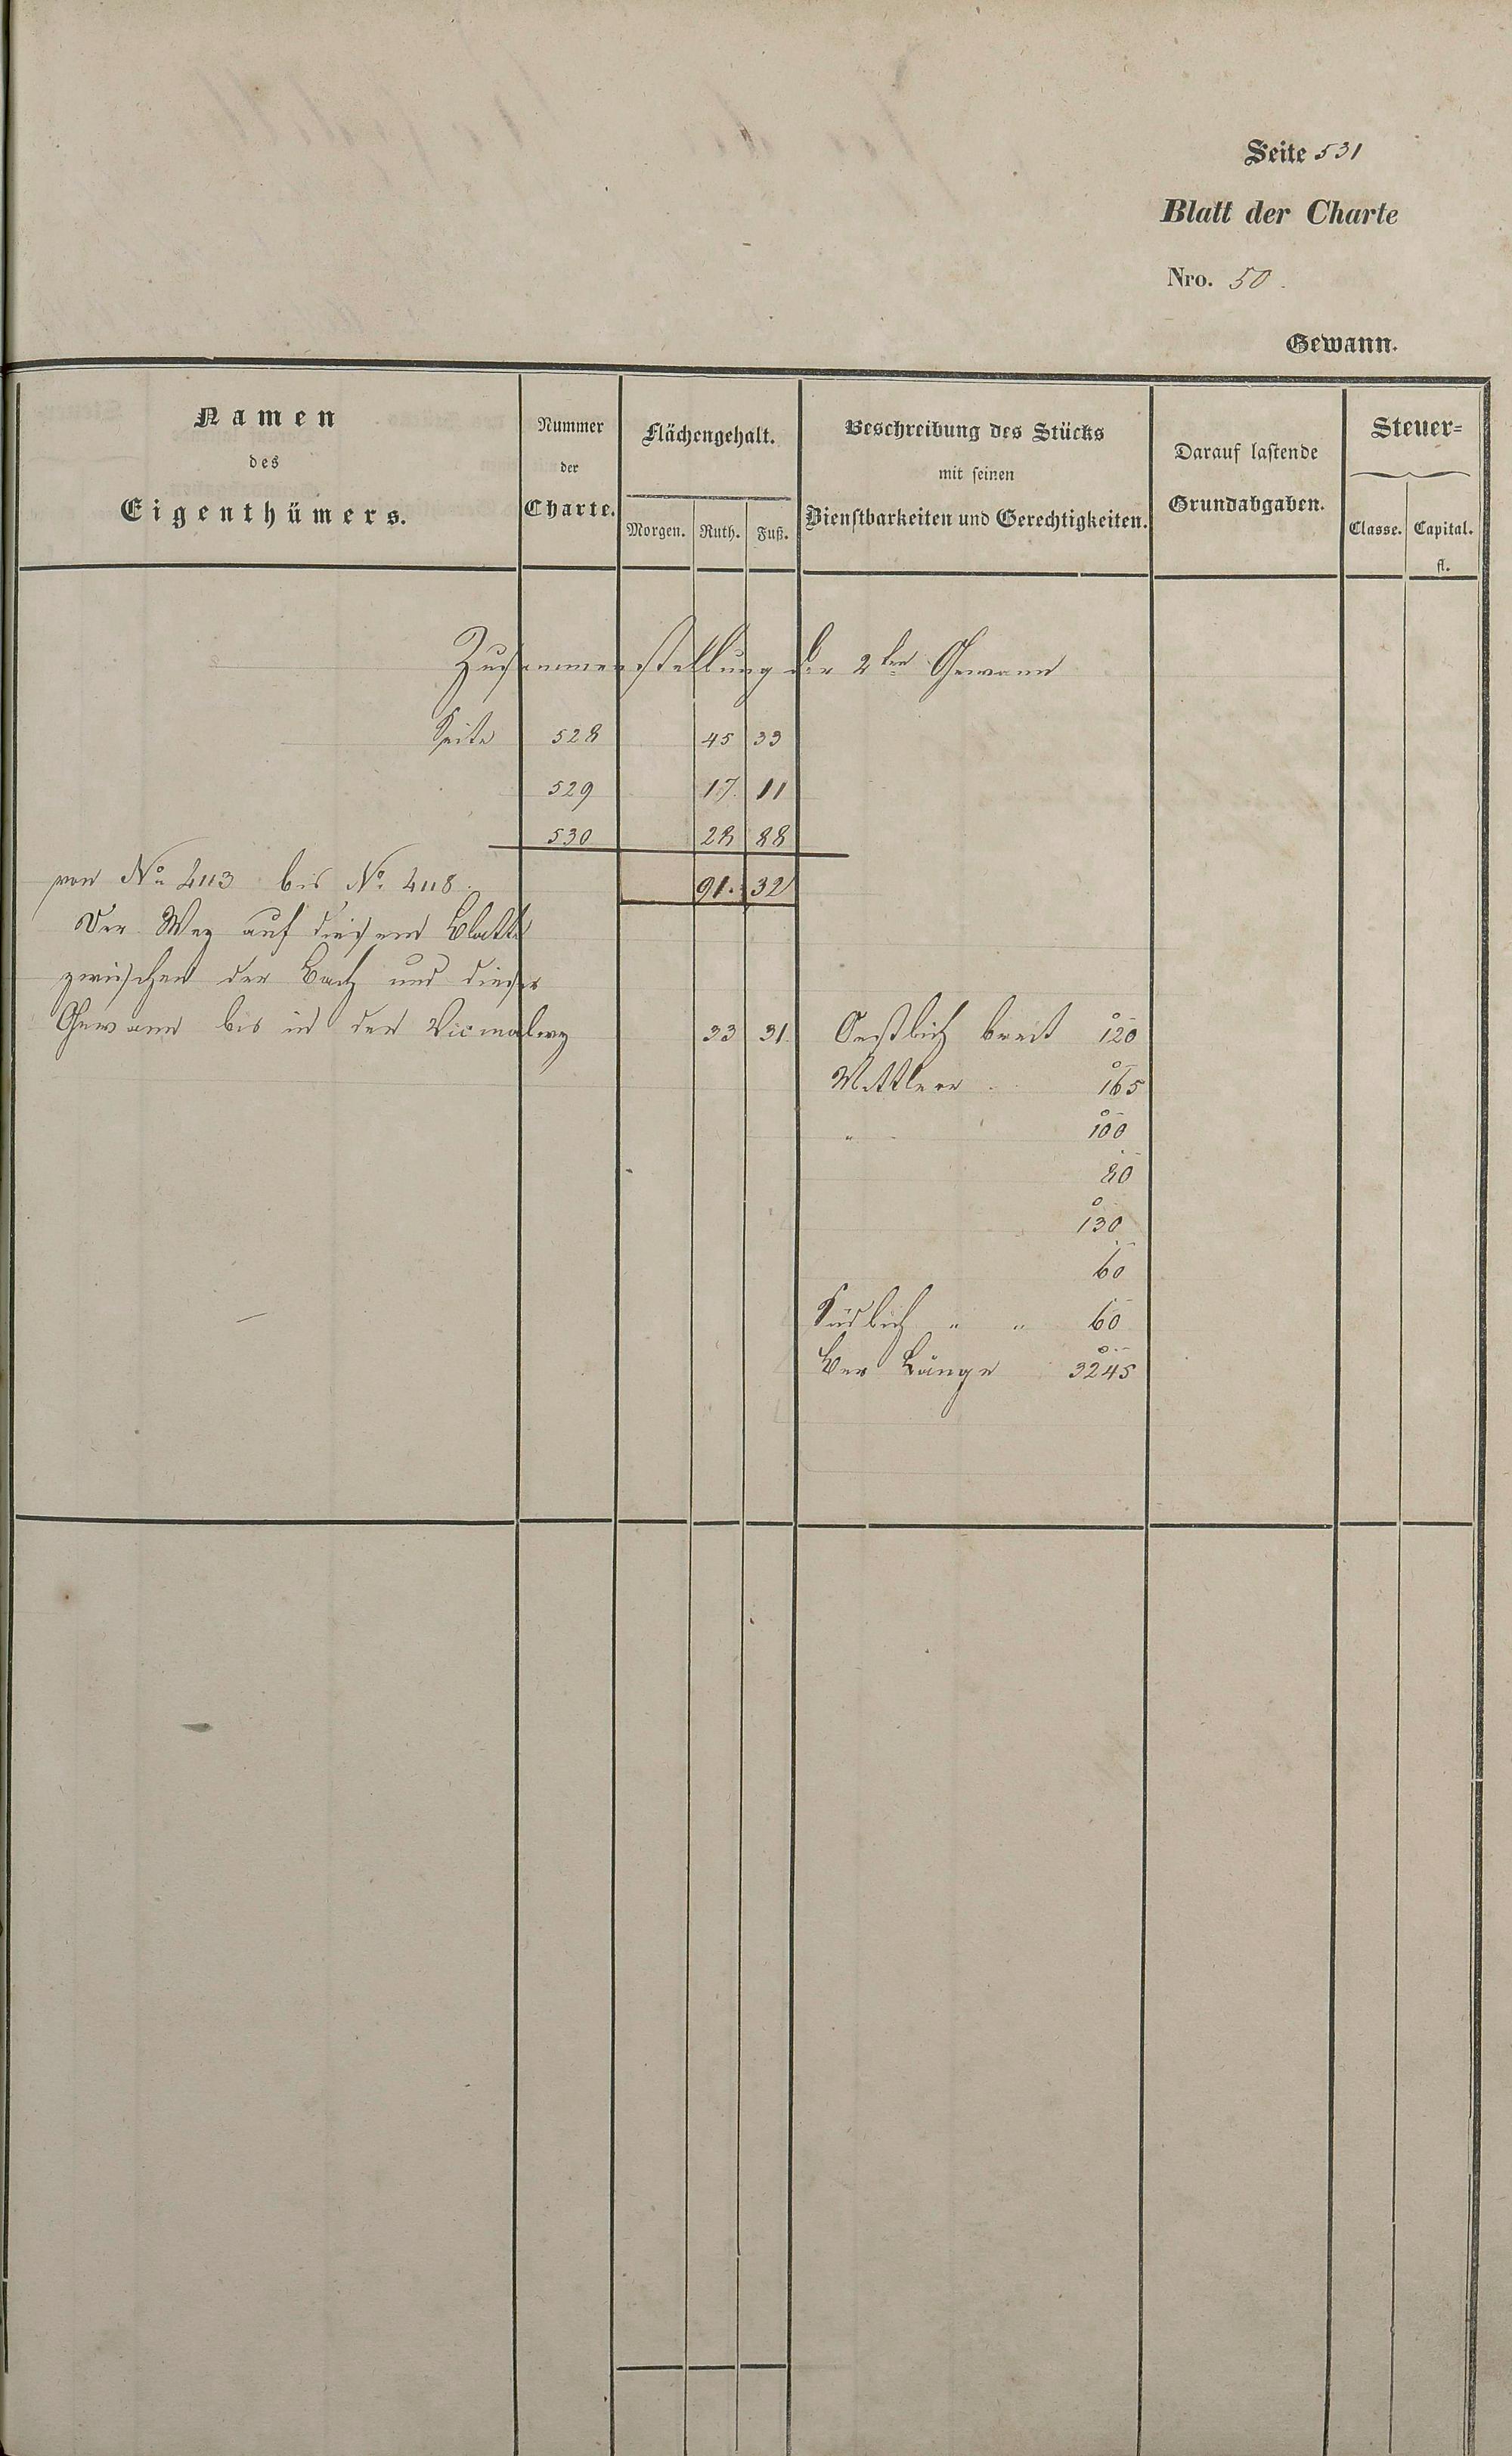 Seite 531
Blatt der Charte
Nro. 50.
Gewann.
Namen des Eigenthümers.
Nummer der Charte.
Flächengehalt.
Morgen. Ruth. Fuß.
Beschreibung des Stücks mit seinen Dienstbarkeiten und Gerechtigkeiten.
Darauf lastende Grundabgaben.
Steuer=
Classe. Capital.
fl.
Zusammenstellung der 2ten Gewann
Seite 528 45 33
529 17 11
530 28 88
von No. 4113 bis No. 4118. 91. 32
Der Weg auf diesem Blatte
zwischen der Bach und dieser
Gewann bis in den Vicinalweg 33 31. Oestlich breit 120
Mittlere 165
" 100
80
130
60
Südlich " " 60
Der Länge 3245